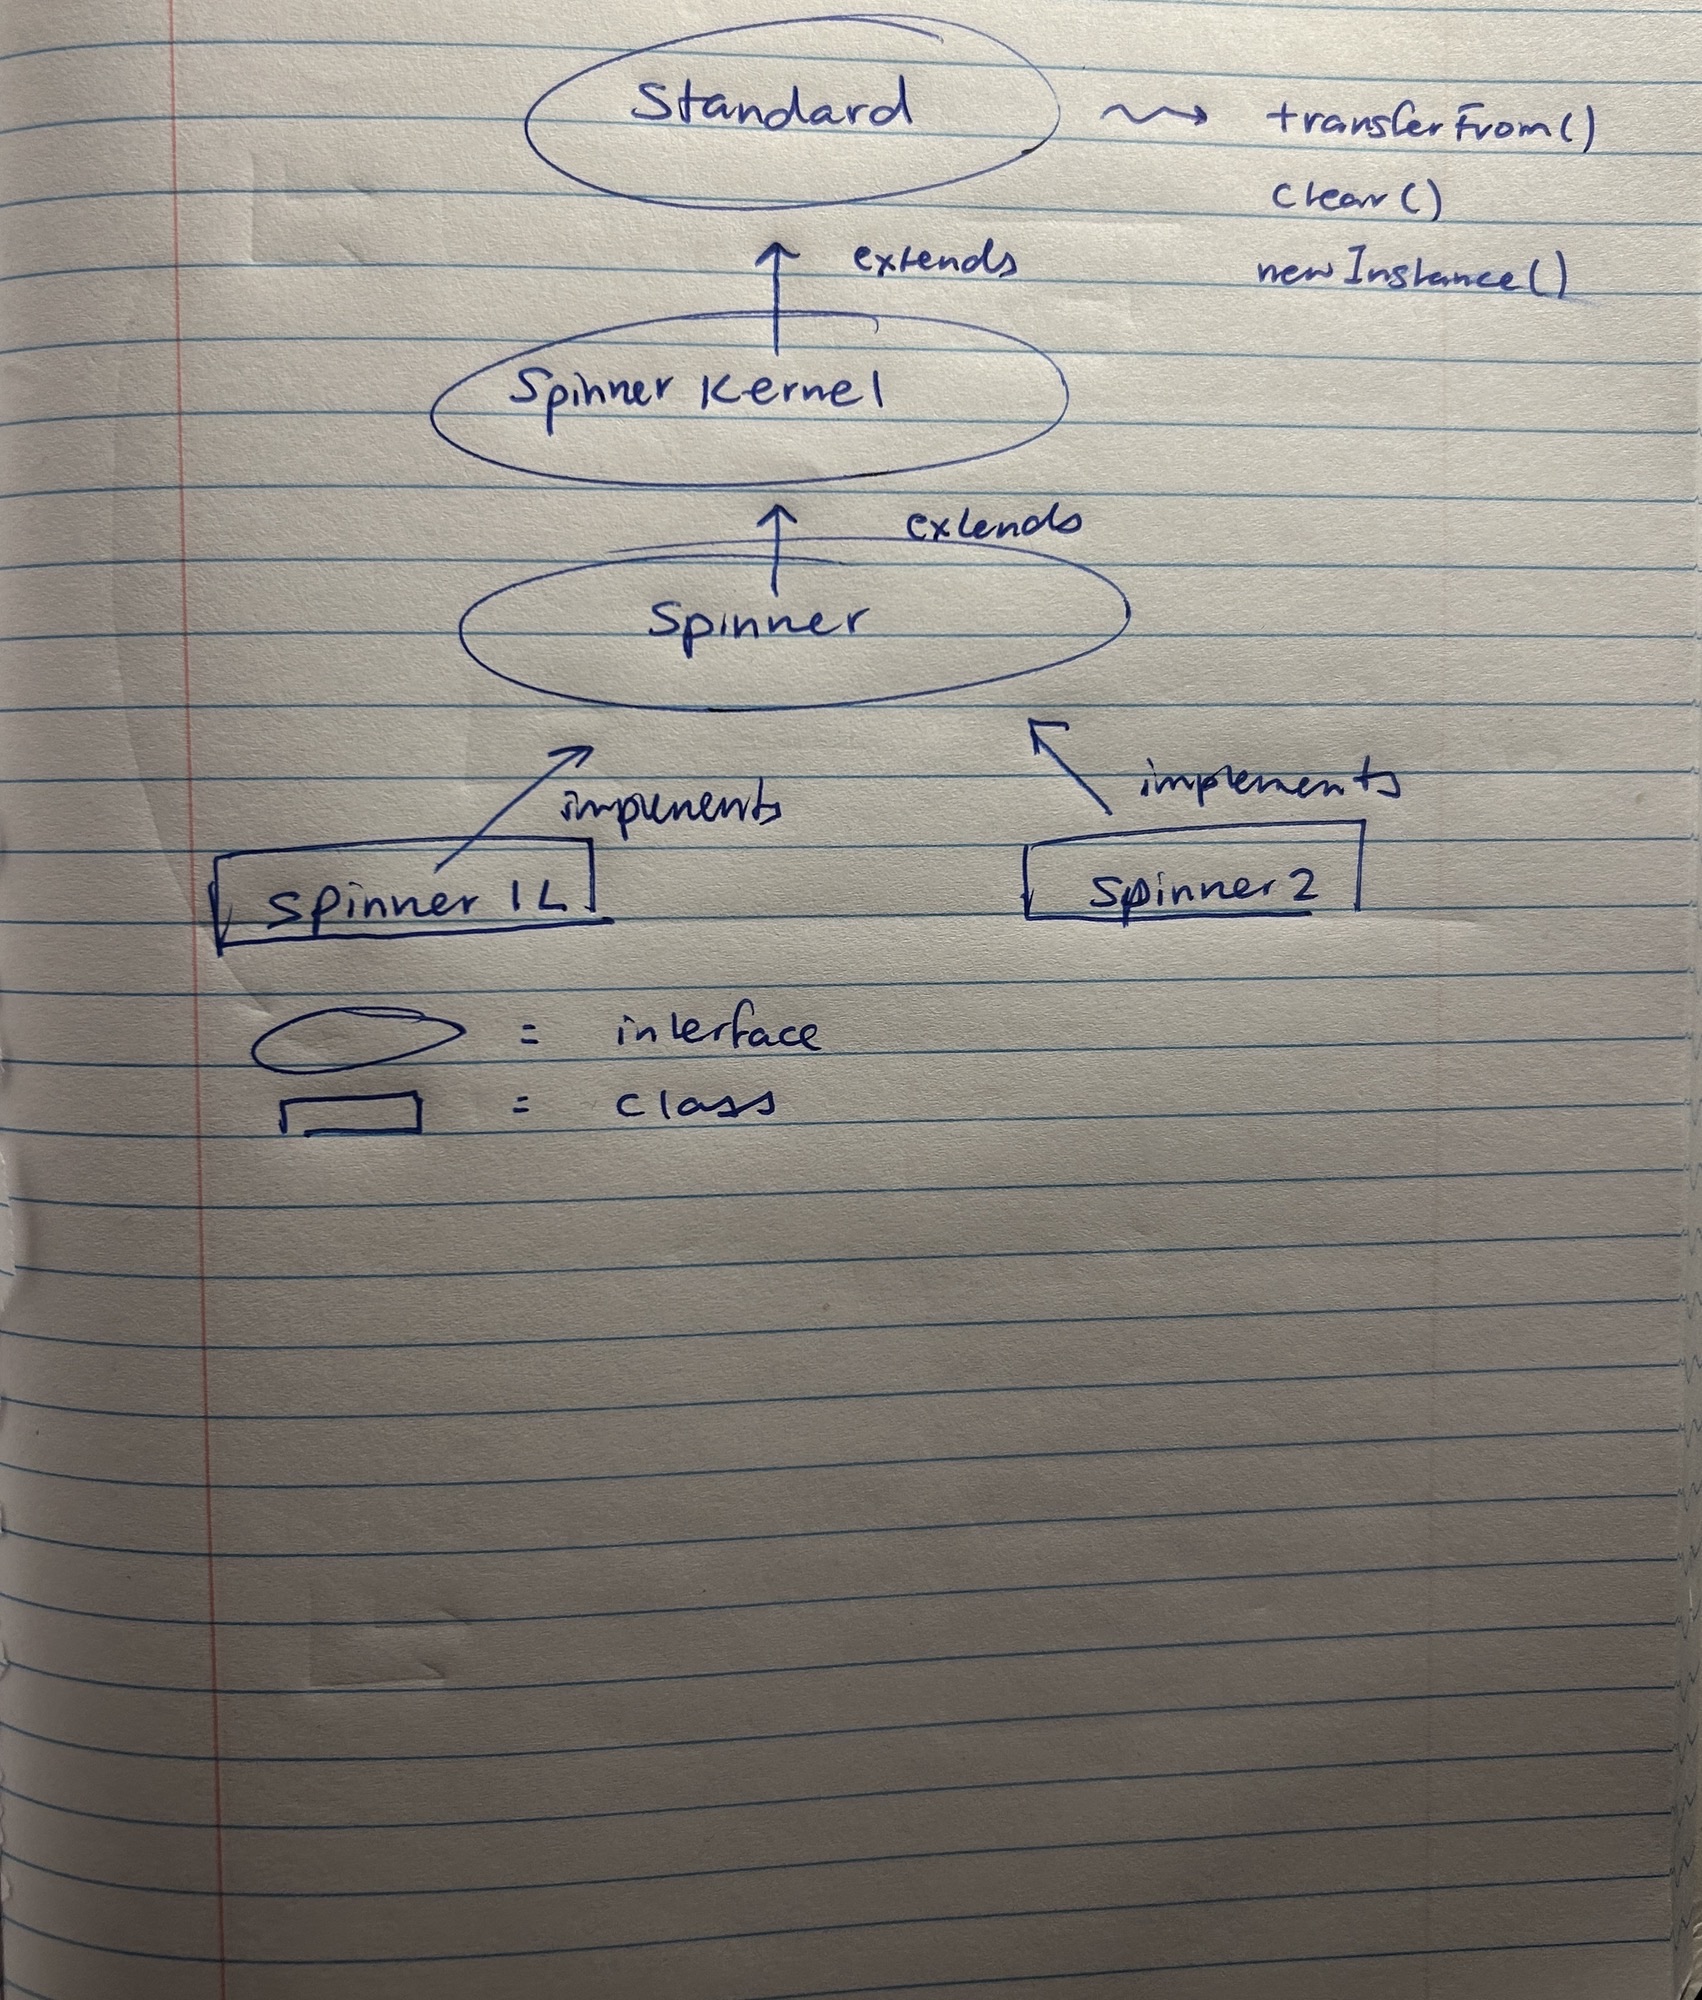 Standard
transferFrom()
clear()
newInstance()
extends
Spinner Kernel
extends
Spinner
implements
implements
Spinner 1L
Spinner 2
= interface
= class